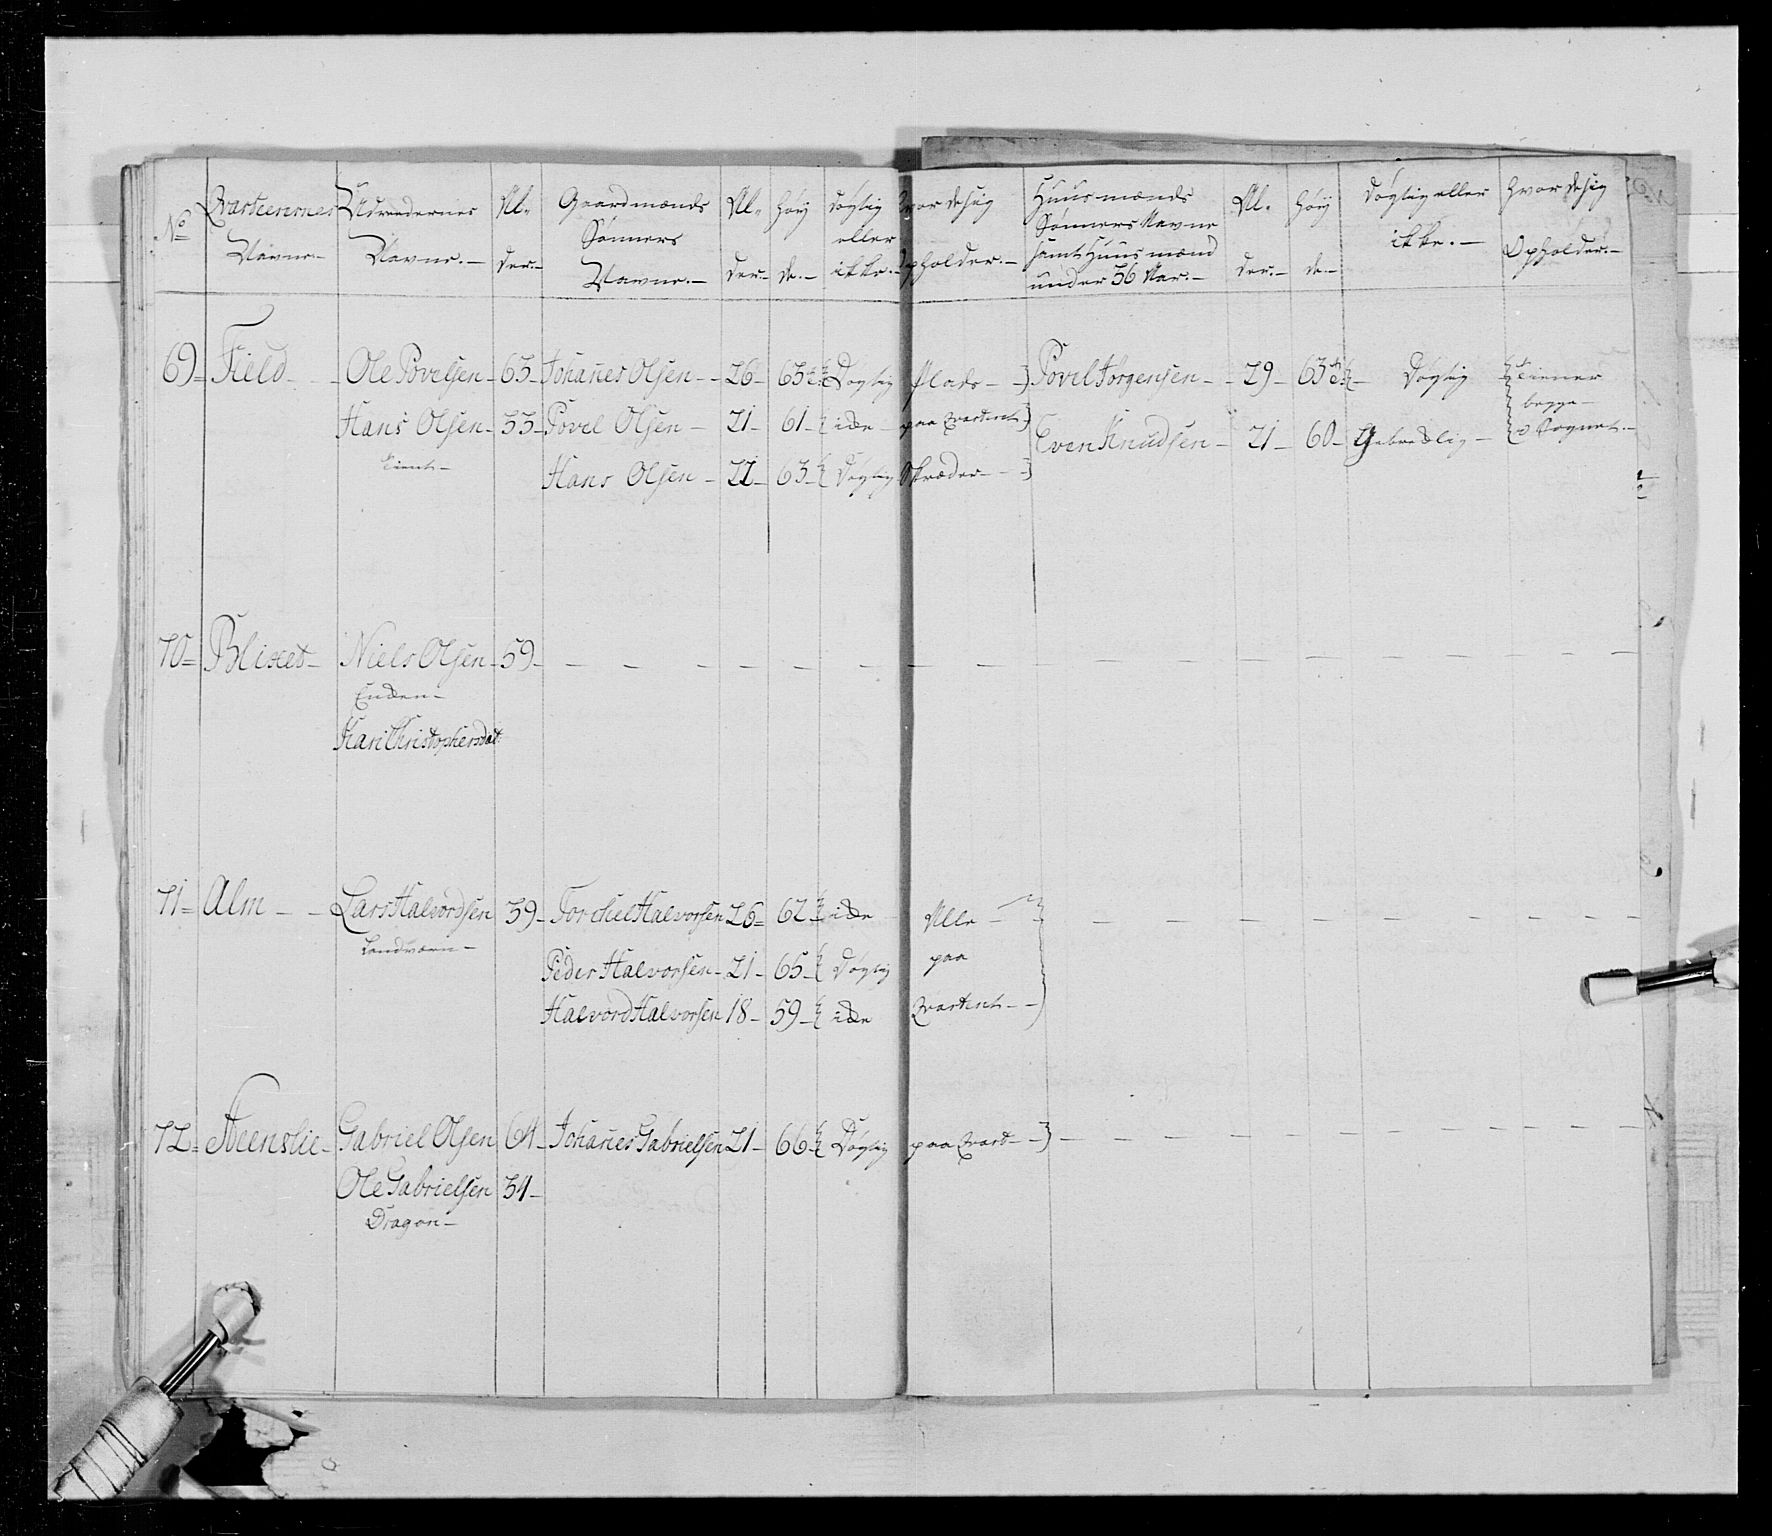 No
Qvarteerernes Navne.-
Udreedernes Navne.-
Al- der.-
Gaardmænds Sønners Navne.-
Al- der-
Høy de.-
døgtig eller ikke.-
hvor de sig opholder.-
Huusmænds Sønners Navne samt Huusmænd under 36 Aar.-
Al- der.-
Høy de-
Døgtig eller ikke.-
hvor de sig Opholder.-
69- Field - Ole Povelsen - 63- Johanes Olsen - 26- 63 Døgtig Plads - Povel Jorgensen - 29- 63 Døgtig tiener
Hans Olsen - 33- Povel Olsen - 21- 61- paa Qvarteret begge-
Even Knudsen - 21- 60- Gebredlig - i Sognet.-
Hans Olsen - 22- 63- Døgtig Skræder -
70= Blixet- Niels Olsen - 59-
Enken-
Kari Christophersdat
71= Alm - Lars Halvordsen 39- Torchel Halvorsen 26= 62 Alle -
Landværn-
Peder Halvorsen- 21- 65- Døgtig paa
Halvord Halvorsen 18- 59- Qvarteret -
72= Steenslie- Gabriel Olsen 64- Johanes Gabrielsen 21- 66- Døgtig paa Qvart-
Ole Gabrielsen 34-
Dragon-